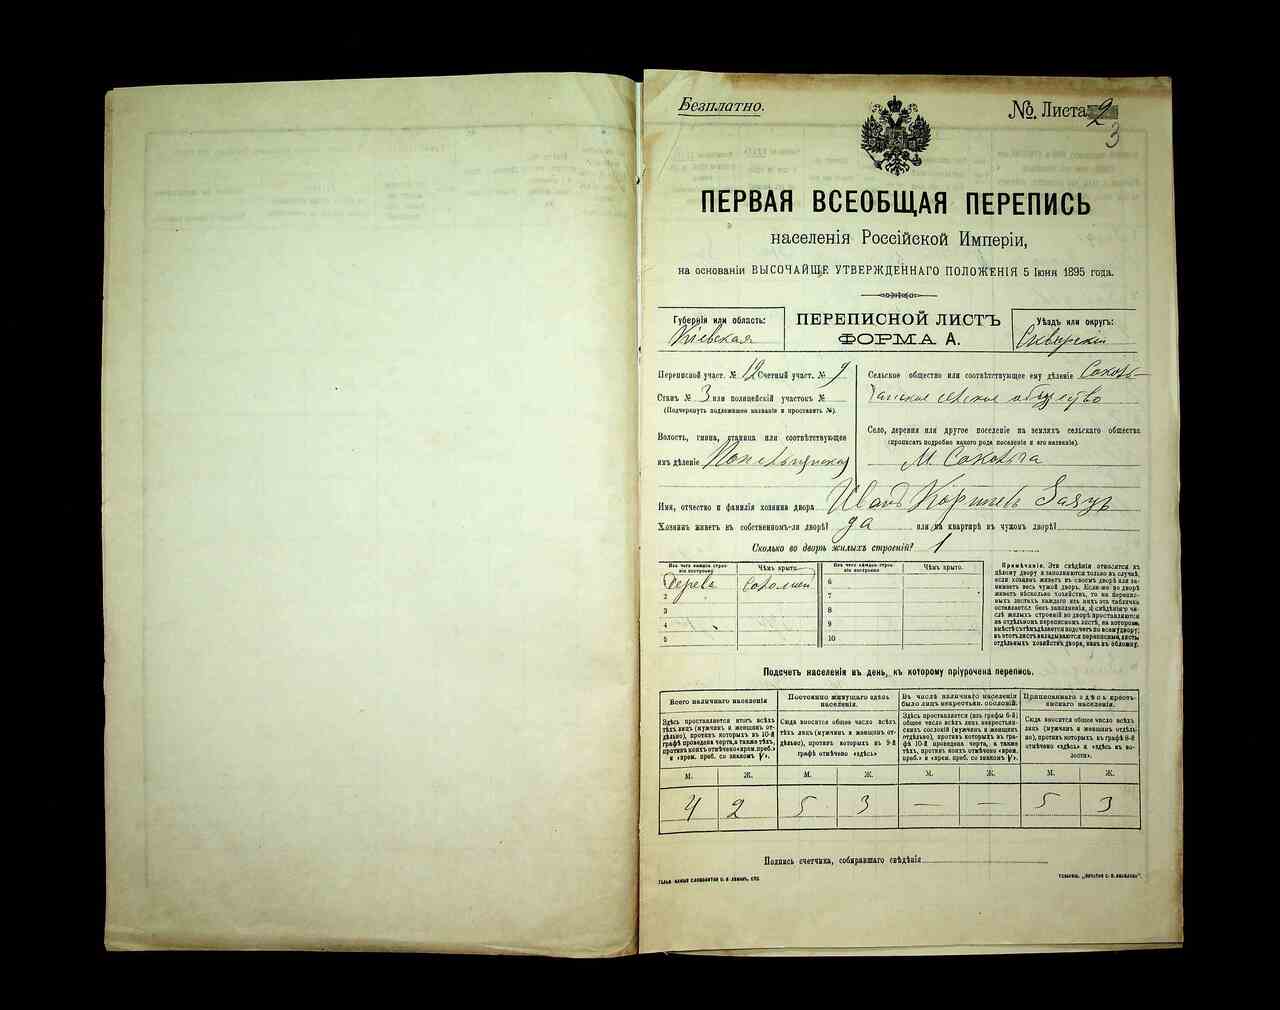 Безплатно.
№ Листа 2
3
ПЕРВАЯ ВСЕОБЩАЯ ПЕРЕПИСЬ
населенія Россійской Имперіи,
на основаніи ВЫСОЧАЙШЕ УТВЕРЖДЕННАГО ПОЛОЖЕНІЯ 5 Іюня 1895 года.
Губернія или область:
Кіевская
ПЕРЕПИСНОЙ ЛИСТЪ
ФОРМА А.
Уѣздъ или округъ:
Сквирскій
Переписной участ. № 12 Счетный участ. № 9
Станъ № 3 или полицейскій участокъ №
(Подчеркнуть подлежащее названіе и проставить №).
Волость, гмина, станица или соотвѣтствующее
имъ дѣленіе
Сельское общество или соотвѣтствующее ему дѣленіе
сельское общество
Село, деревня или другое поселеніе на земляхъ сельскаго общества
(прописать подробно какого рода поселеніе и его названіе).
М.
Имя, отчество и фамилія хозяина двора Иванъ Заяцъ
Хозяинъ живетъ въ собственномъ-ли дворѣ? да или на квартирѣ въ чужомъ дворѣ?
Сколько во дворѣ жилыхъ строеній? 1
Изъ чего каждое строеніе построено
Чѣмъ крыто.
Изъ чего каждое строеніе построено
Чѣмъ крыто.
Дерева соломой 6
2 7
3 8
4 9
5 10
Примѣчаніе. Эти свѣдѣнія относятся къ
цѣлому двору и заполняются только въ случаѣ,
если хозяинъ живетъ въ своемъ дворѣ или занимаетъ
весь чужой дворъ. Если-же во дворѣ
живетъ нѣсколько хозяйствъ, то на переписныхъ
листахъ каждаго изъ нихъ эта табличка
оставляется безъ заполненія, а свѣдѣнія о числѣ
жилыхъ строеній во дворѣ проставляются
на отдѣльномъ переписномъ листѣ, на которомъ
вмѣстѣ съ тѣмъ дѣлается подсчетъ по всему двору;
въ этотъ листъ вкладываются переписные листы
отдѣльныхъ хозяйствъ двора, какъ въ обложку.
Подсчетъ населенія въ день, къ которому пріурочена перепись.
Всего наличнаго населенія
Здѣсь проставляется итогъ всѣхъ
тѣхъ лицъ (мужчинъ и женщинъ отдѣльно),
противъ которыхъ въ 10-й
графѣ проведена черта, а также тѣхъ,
противъ коихъ отмѣчено «врем. преб.»
и «врем. преб. со знакомъ V».
Постоянно живущаго здѣсь
населенія.
Сюда вносится общее число всѣхъ
тѣхъ лицъ (мужчинъ и женщинъ отдѣльно),
противъ которыхъ въ 9-й
графѣ отмѣчено «здѣсь»
Въ числѣ наличнаго населенія
было лицъ некрестьян. сословій.
Здѣсь проставляется (изъ графы 6-й)
общее число всѣхъ лицъ некрестьянскихъ
сословій (мужчинъ и женщинъ
отдѣльно), противъ которыхъ въ графѣ
10-й проведена черта, а также
тѣхъ, противъ коихъ отмѣчено «врем.
преб.» и «врем. преб. со знакомъ V».
Приписаннаго здѣсь крестьянскаго
населенія.
Сюда вносится общее число всѣхъ
лицъ (мужчинъ и женщинъ отдѣльно),
противъ которыхъ въ графѣ 8-й
отмѣчено «здѣсь» и «здѣсь въ волости».
М. Ж. М. Ж. М. Ж. М. Ж.
4 2 5 3 — — 5 3
Подпись счетчика, собиравшаго свѣдѣнія